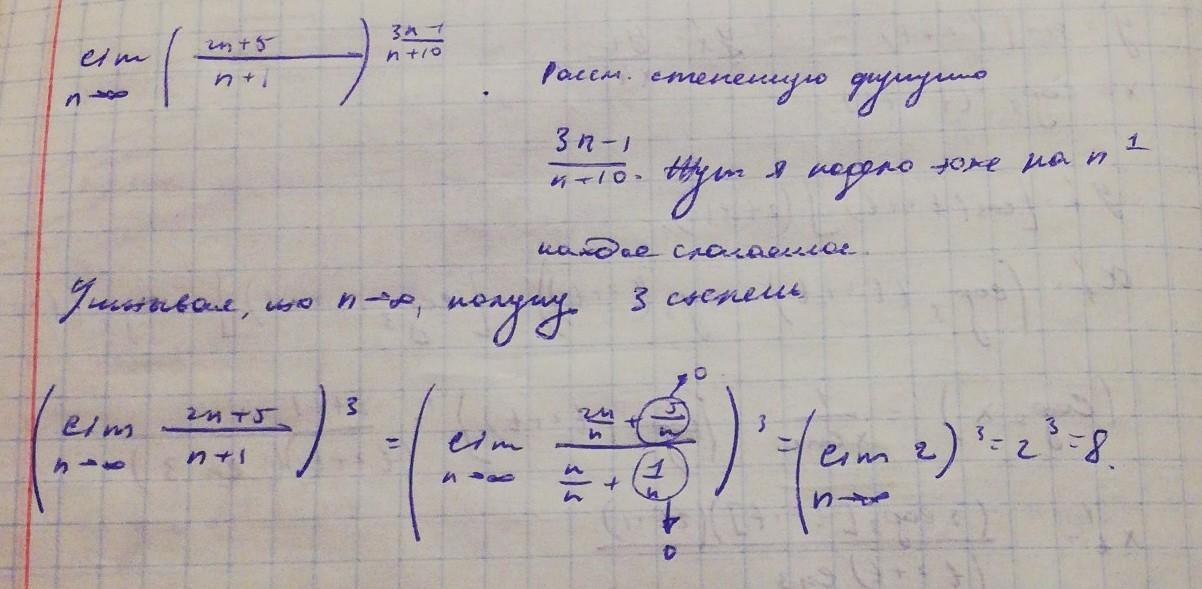 lim n→∞ ( (2n+5)/(n+1) )^((3n-1)/(n+10)) .
Рассм. степенную функцию
(3n-1)/(n+10). Тут я поделю тоже на n^1
каждое слагаемое.
Учитывая, что n→∞, получу 3 степень
( lim n→∞ (2n+5)/(n+1) )^3 = ( lim n→∞ (2n/n + 5/n →0)/(n/n + 1/n →0) )^3 = ( lim n→∞ 2 )^3 = 2^3 = 8.